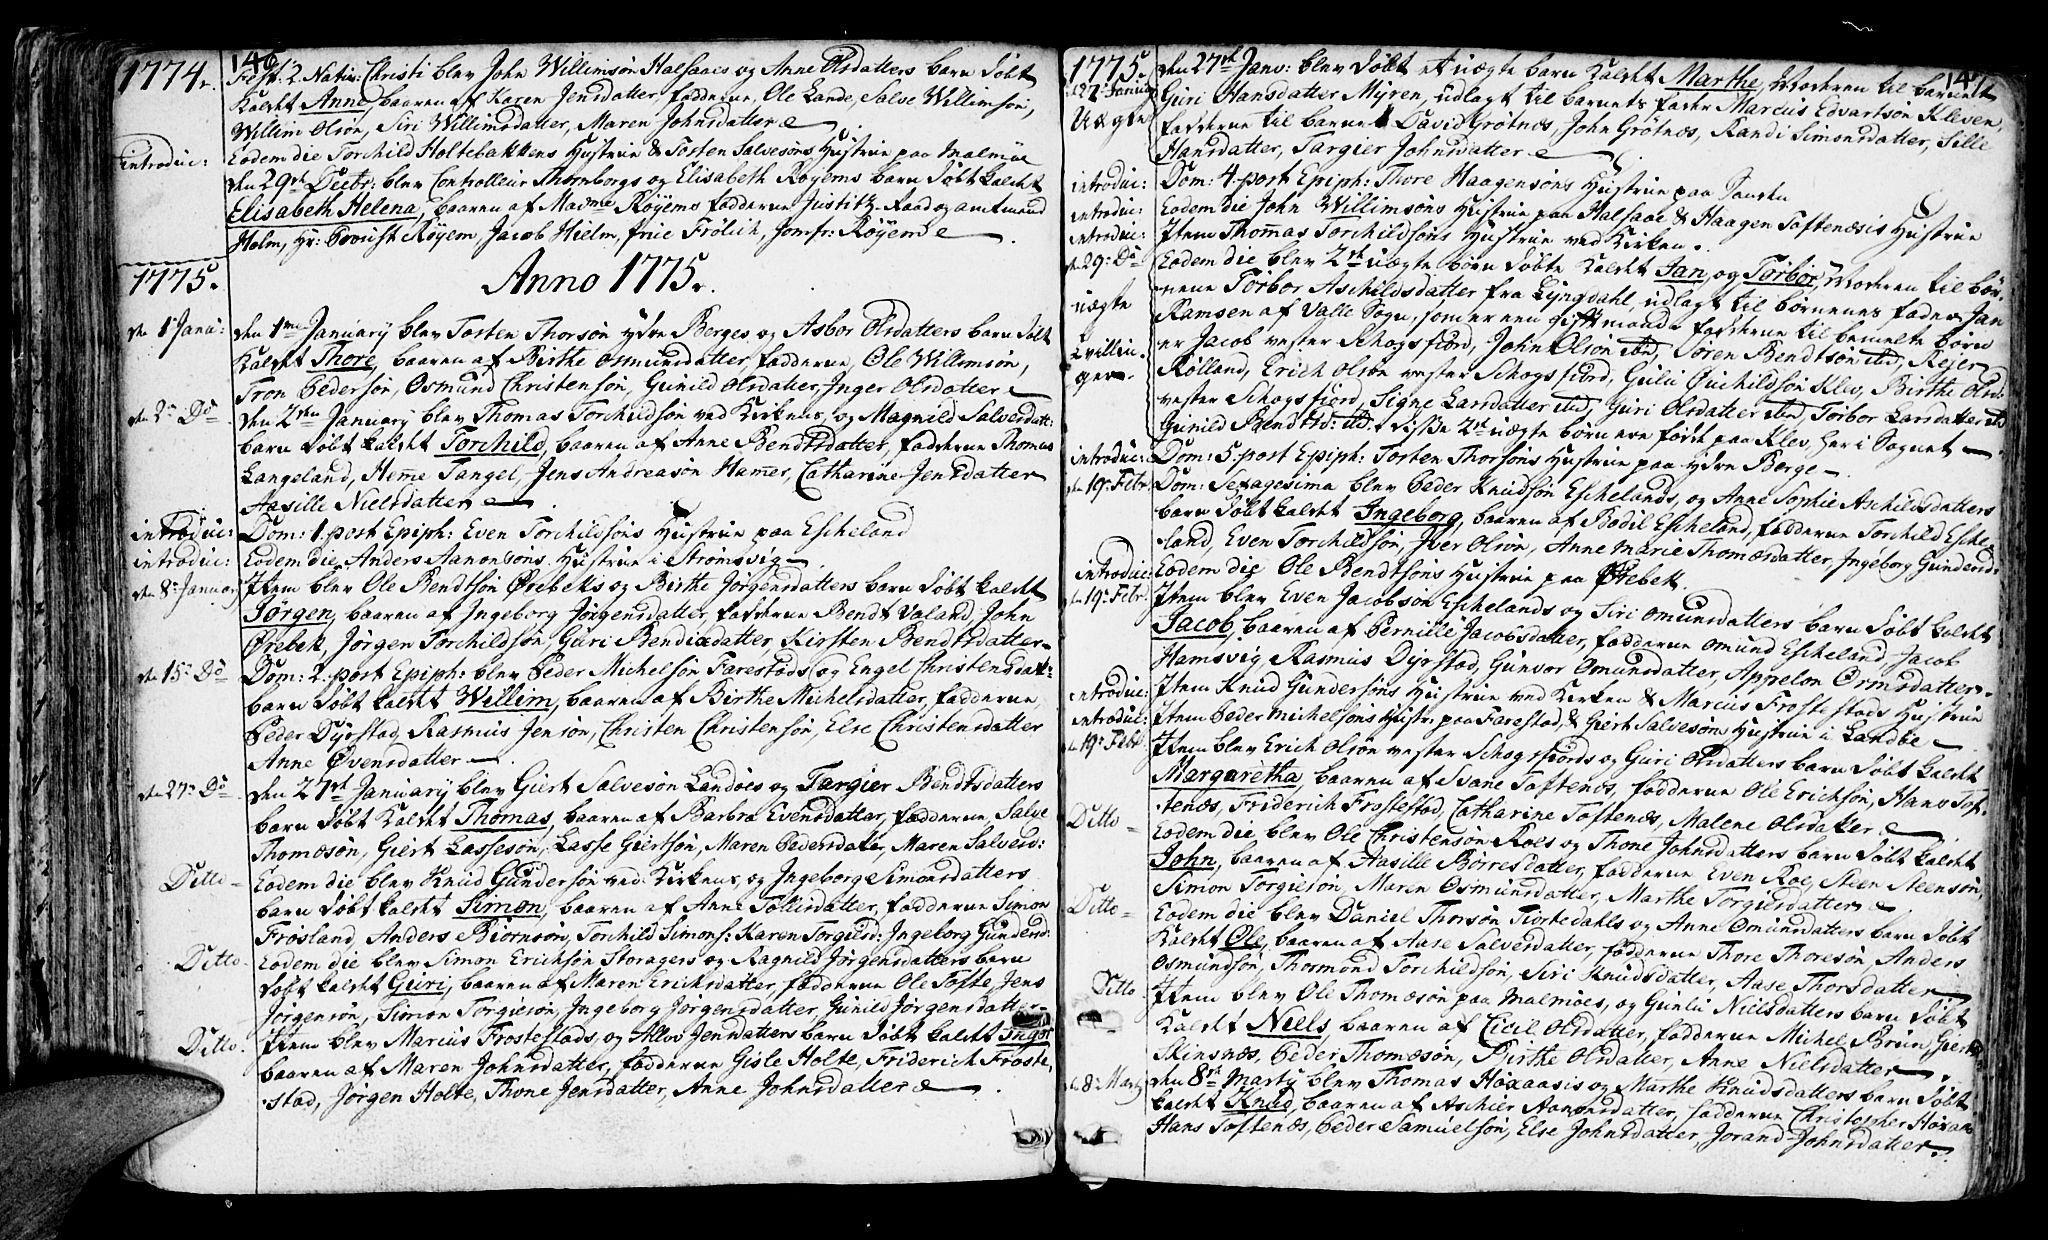 146
1774.
Fest: 2. Nativ: Christi blev John Willimsøn Halsaaes og Anne Olsdatters barn døbt
kaldet Anne, baaren af Karen Jensdatter, fadderne, Ole Lande, Salve Willimsøn,
Willim Olsøn, Siri Willimsdatter, Maren Johnsdatter
introduc: Eodem die Torchild Holtebakkens Hustrue & Tosten Salvesøns Hustrue paa Malmøe
den 29de Decbr: blev Controlleur Thornborgs og Elisabeth Røyems barn døbt kaldet
Elisabeth Helena, baaren af Madme Røyems fadderne Justitz-Raad og amtmand
Holm, Hr: Provst Røyem Jacob Hielm, frue Frölich, Jomfr: Røyem
1775. Anno 1775.
den 1 Janu: den 1me January blev Tosten Thorsøn ydre Berges og Asbor Olsdatters barn døbt
kaldet Thore, baaren af Birthe Osmundsdatter, fadderne, Ole Willimsøn,
Tron Pedersøn, Osmund Christensøn, Gunild Olsdatter, Inger Olsdatter
den 2 Do den 2den January blev Thomas Torchildsøn ved Kirkens, og Magnild Salvesdatt:
barn døbt kaldet Torchild, baaren af Anne Bendtsdatter, fadderne Thomas
Langeland, Heme Tangel, Jens Andreasøn Hamer, Catharine Jensdatter
Aasille Nielsdatter
introduc: Dom: 1. post Epiph: Even Torchildsøns Hustrue paa Escheland
introduc: Eodem die Anders Aanonsøns Hustrue i Strømsvig
den 8: January Item blev Ole Bendtsøn Ørebeks og Birthe Jørgensdatters barn døbt kaldet
Jørgen, baaren af Ingeborg Jørgensdatter, fadderne Bendt Valand, John
Ørebek, Jørgen Torchildsøn, Guri Bendixdatter, Kirsten Bendtsdatter
den 15: Do Dom: 2. post Epiph: blev Peder Michelsøn Farestads og Engel Christensdatt:
barn døbt kaldet Willim, baaren af Birthe Michelsdatter, fadderne,
Peder Dyrstad, Rasmus Jensøn, Christen Christensøn, Else Christensdatter
Anne Øvensdatter
den 27: Do den 27de January blev Giert Salvesøn Landøes og Targier Bendtsdatters
barn døbt kaldet Thomas, baaren af Barbra Evensdatter, fadderne, Salve
Thomæsøn, Giert Lassesøn, Lasse Giertsøn, Maren Pedersdatter, Maren Salvesd:
Ditto Eodem die blev Knud Gundersøn ved Kirkens, og Ingeborg Simonsdatters
barn døbt kaldet Simon, baaren af Anne Tollisdatter, fadderne Simon
Frøsland, Anders Biørnsøn, Torchild Simons: Karen Torgiersd: Ingeborg Gundersd:
Ditto Eodem die blev Simon Erichsøn Storagers og Ragnild Jørgensdatters barn
døbt kaldet Guri, baaren af Maren Erichsdatter, fadderne Ole Tofte, Jens
Jørgensøn, Simon Torgiesøn, Ingeborg Jørgensdatter, Gunild Jørgensdatter
Ditto. Item blev Marcus Frostestads, og Allov Jensdatters barn døbt kaldet Inger
baaren af Maren Johnsdatter, fadderne Gisle Holte, Friderich Froste-
stad, Jørgen Holte, Thone Jensdatter, Anne Johnsdatter
147
1775.
27 January den 27de Janv: blev døbt et uægte barn kaldet Marthe, Moderen til barnet
Uægte Guri Hansdatter Myren, udlagt til barnets fader Marcus Edvartsøn Kleven,
fadderne til barnet David Grötnæs, John Grötnæs, Randi Simonsdatter, Sille
Hansdatter, Targier Johnsdatter
introduc: Dom: 4. post Epiph: Thore Haagensøns Hustrue paa
introduc: Eodem die John Willimsøns Hustrue paa Halsaae & Haagen Toftenæsis Hustrue
introduc: Item Thomas Torchildsøns Hustrue ved Kirken.
den 29: Do Eodem die blev 2de uægte børn døbte kaldet Jan og Torbor, Moderen til bør-
uægte nene Torbor Aschildsdatter fra Lyngdahl, udlagt til børnenes fader Jan
Ramsen af Valle Sogn, som er een gift mand. fadderne til bemelte børn
tvillin- er Jacob vester Schogsfiord, John Olsøn ibd, Søren Bendtsøn ibd, Rejer
ger. Rølland, Erich Olsøn vester Schogsfiord, Guli Klev, Birthe Olsd:
vester Schogsfiord, Signe Larsdatter ibd, Guri Olsdatter ibd, Torbor Larsdatter ibd
Gunild Bendtsd: ibd. disse 2de uægte børn ere født paa Klev, her i Sognet
introduc: Dom: 5. post Epiph: Tosten Thorsøns Hustrue paa ydre Berge
den 19: Febr: Dom: Sexagesima blev Peder Knudsøn Eschelands, og Anne Sophie Aschildsdatters
barn døbt kaldet Ingeborg, baaren af Bodil Escheland, fadderne Torchild Esche-
land, Even Torchildsøn, Iver Olsøn, Anne Marie Thomæsdatter, Ingeborg Gundersd:
introduc: Eodem die Ole Bendtsøns Hustrue paa Ørebek
den 19: Febr: Item blev Even Jacobsøn Eschelands og Siri Omundsdatters barn døbt kaldet
Jacob, baaren af Pernille Jacobsdatter, fadderne Omund Escheland, Jacob
Hamsvig, Rasmus Dyrstad, Gunvor Omundsdatter, Appelon Ormsdatter
introduc: Item Knud Gundersøns Hustrue ved Kirken & Marcus Frostestads Hustrue
introduc: Item Peder Michelsøns Hustr: paa Farestad, & Giert Salvesøns Hustrue i Landøe
den 19: Febr: Item blev Erich Olsøn vester Schogsfiords og Guri Olsdatters barn døbt kaldet
Margaretha, baaren af Svane Toftenæs, fadderne Ole Erichsøn, Hans Tof-
tenæs, Friderich Frostestad, Catharine Toftenæs, Malene Olsdatter
Ditto Eodem die blev Ole Christensøn Roes og Thone Johnsdatters barn døbt kaldet
John, baaren af Aasille Børresdatter, fadderne Even Roe, Steen Steensøn,
Simon Torgiesøn, Maren Osmundsdatter, Marthe Torgiersdatter
Ditto Eodem die blev Daniel Thorsøn Tiortedahls og Anne Omundsdatters barn døbt
kaldet Ole, baaren af Aase Salvesdatter, fadderne Thore Thoresøn Anders
Osmundsøn, Thormond Torchildsøn, Siri Knudsdatter, Aase Thorsdatter
Ditto Item blev Ole Thomæsøn paa Malmøes, og Gunlu Nielsdatters barn døbt
kaldet Niels, baaren af Cicil Olsdatter, fadderne Michel Bruun, Giert
Skinsnæs, Peder Thomæsøn, Birthe Olsdatter, Anne Nielsdatter
den 8: Marty den 8de Marty blev Thomas Høxaasis og Marthe Knudsdatters barn døbt
kaldet Knud, baaren af Aschier Aanonsdatter, fadderne Christopher Høxaas
Hans Toftenæs, Peder Samuelsøn, Else Johnsdatter, Jorand Johnsdatter.